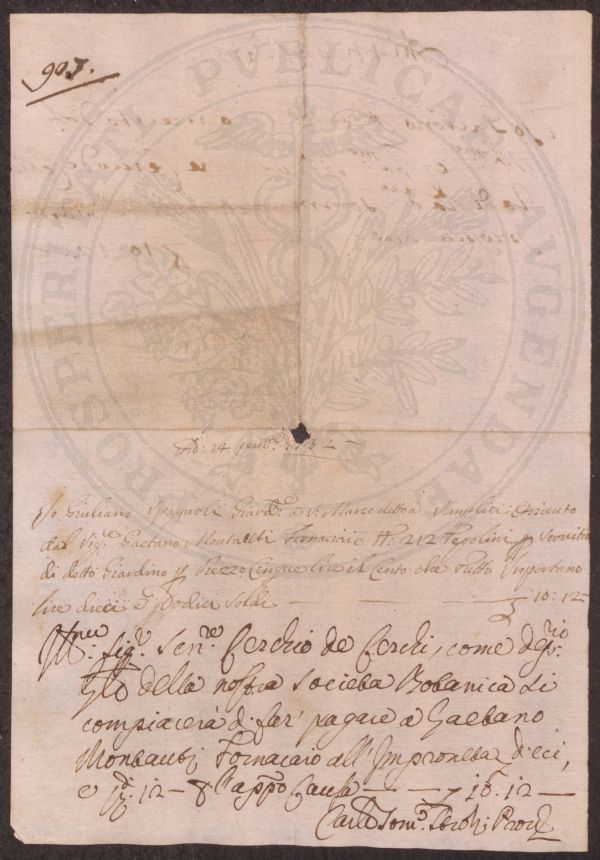 907.
PROSPERITATI PUBLICAE AUGENDAE
Ad: 14
Io Giuliano Spagnoli Giard:e a S: Marco detto a Semplici Ricevuto
dal Sig:re Gaetano Montauti Fornaciaio N: 212 Tegolini p Servitio
di detto Giardino p Prezzo Cinque lire il Cento che tutto Importano
lire dieci e Dodici Soldi — 10:12 —
Sig:r Sen:re Cerchio de Cerchi, come
della nostra Società Botanica si
compiacerà di far' pagare a Gaetano
Montauti Fornaciaio all'Impruneta dieci,
e 12 — Causa — 10.12 —
Carlo Tom: